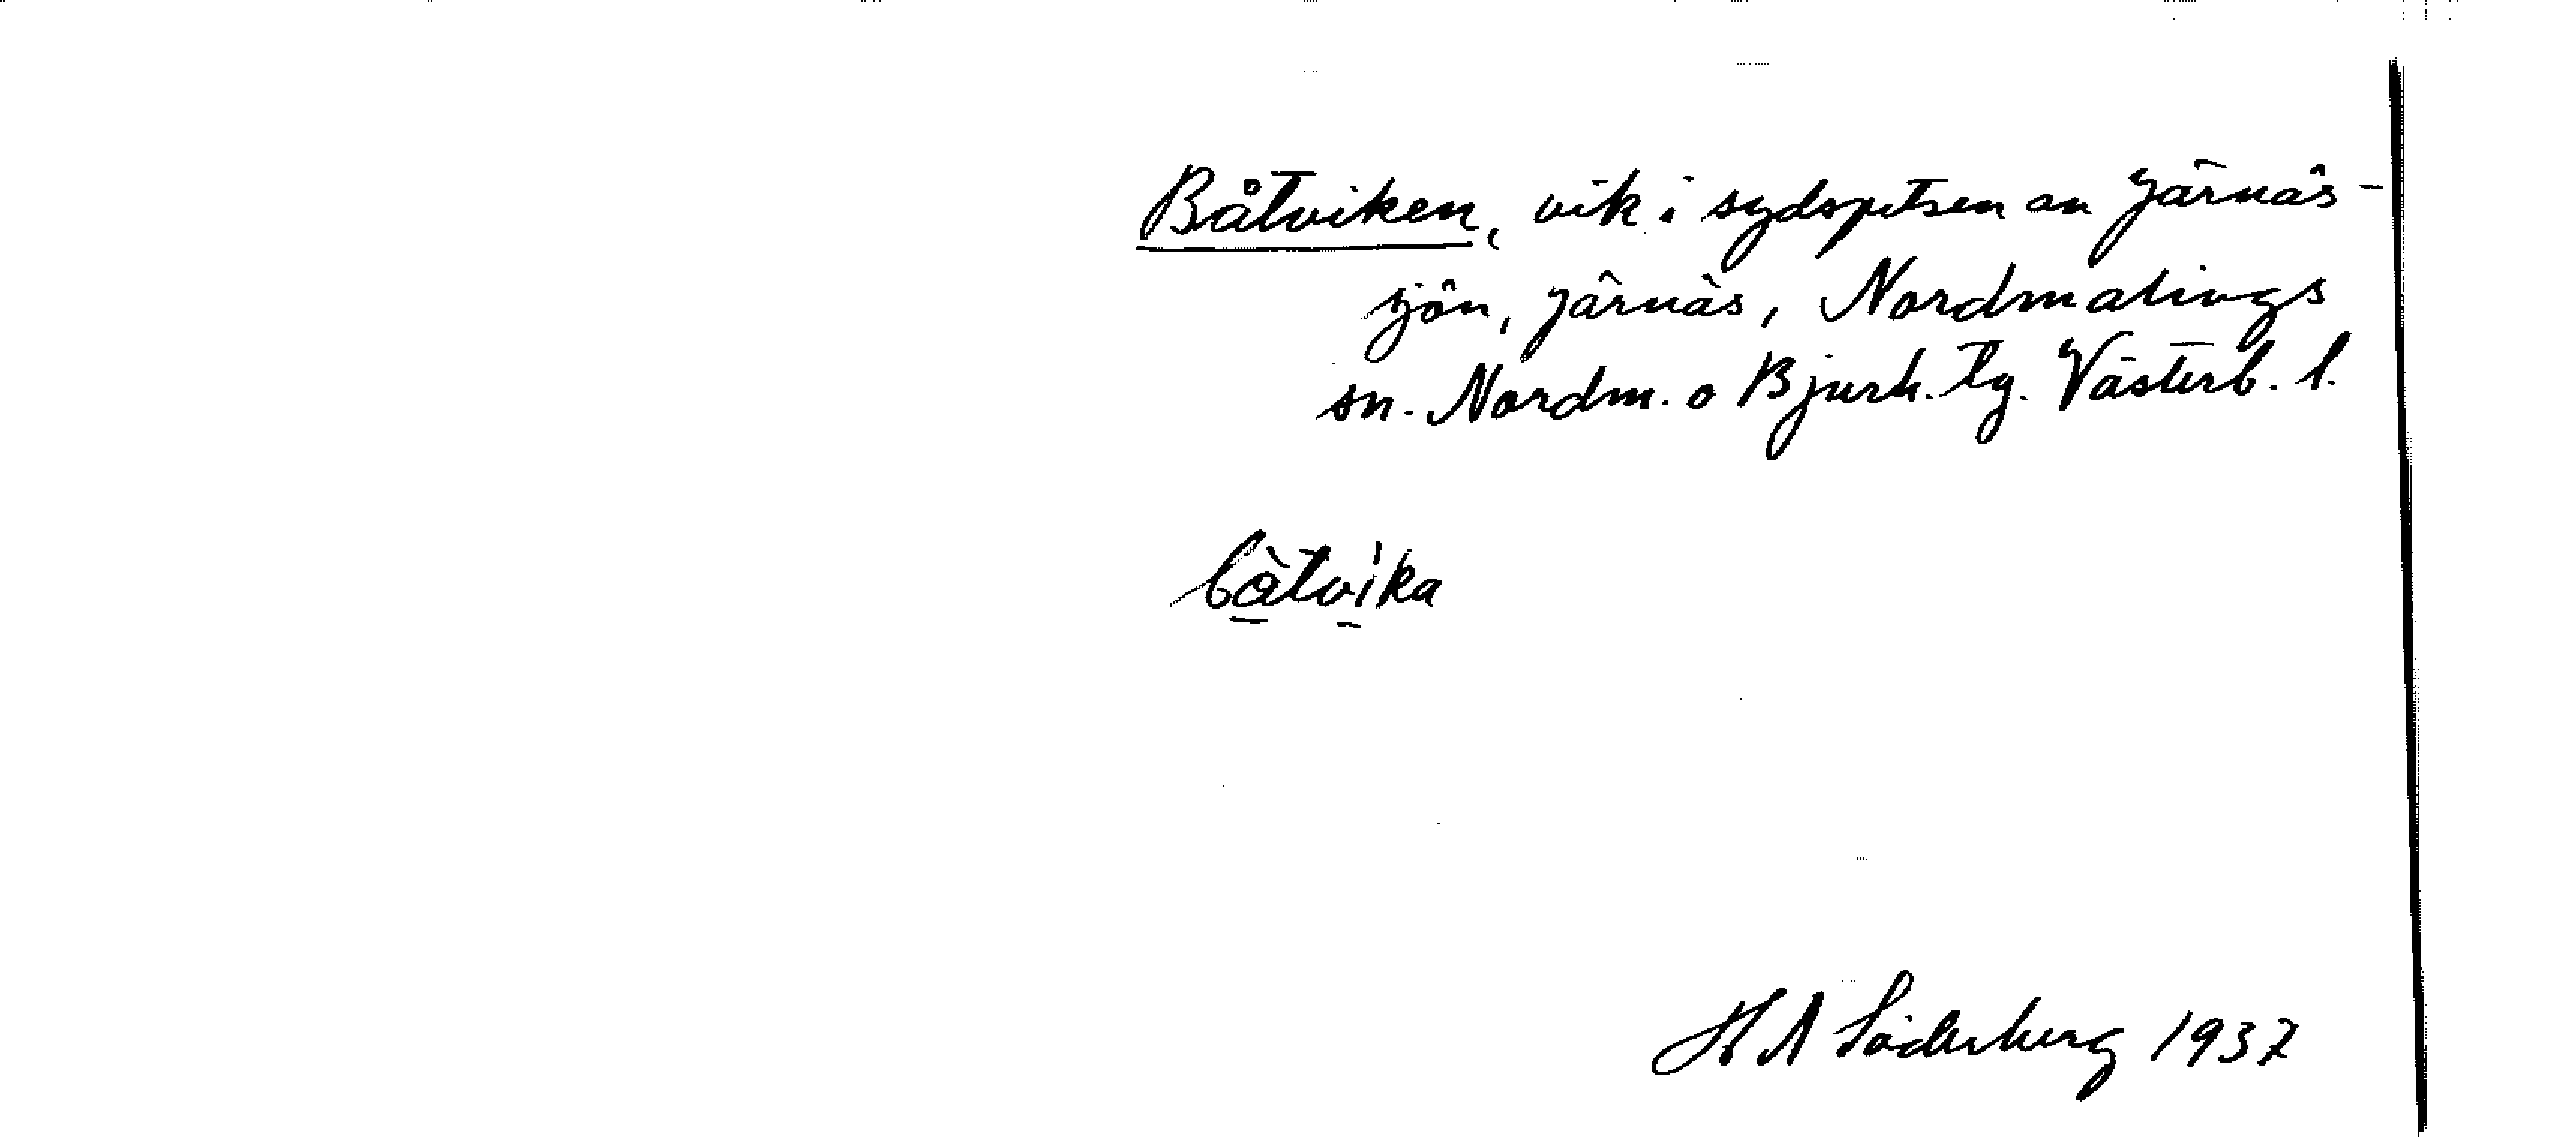 Båtviken, vik i sydspetsen av Järnäs-
sjön, Järnäs, Nordmalings
sn. Nordm. o Bjurh. tg. Västerb. l.
bàtvìka
H A Söderberg 1937